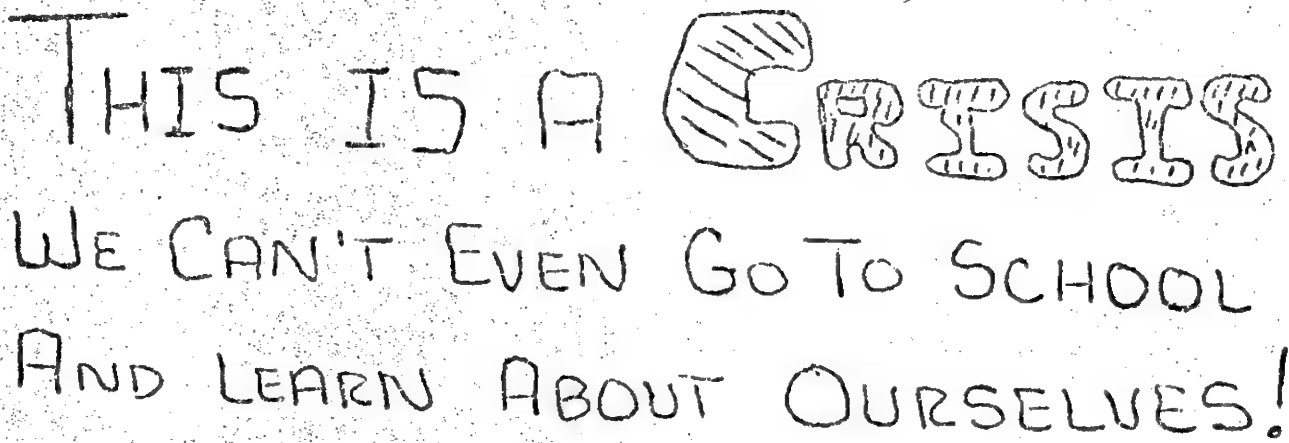 THIS IS A CRISIS
WE CAN'T EVEN GO TO SCHOOL
AND LEARN ABOUT OURSELVES!